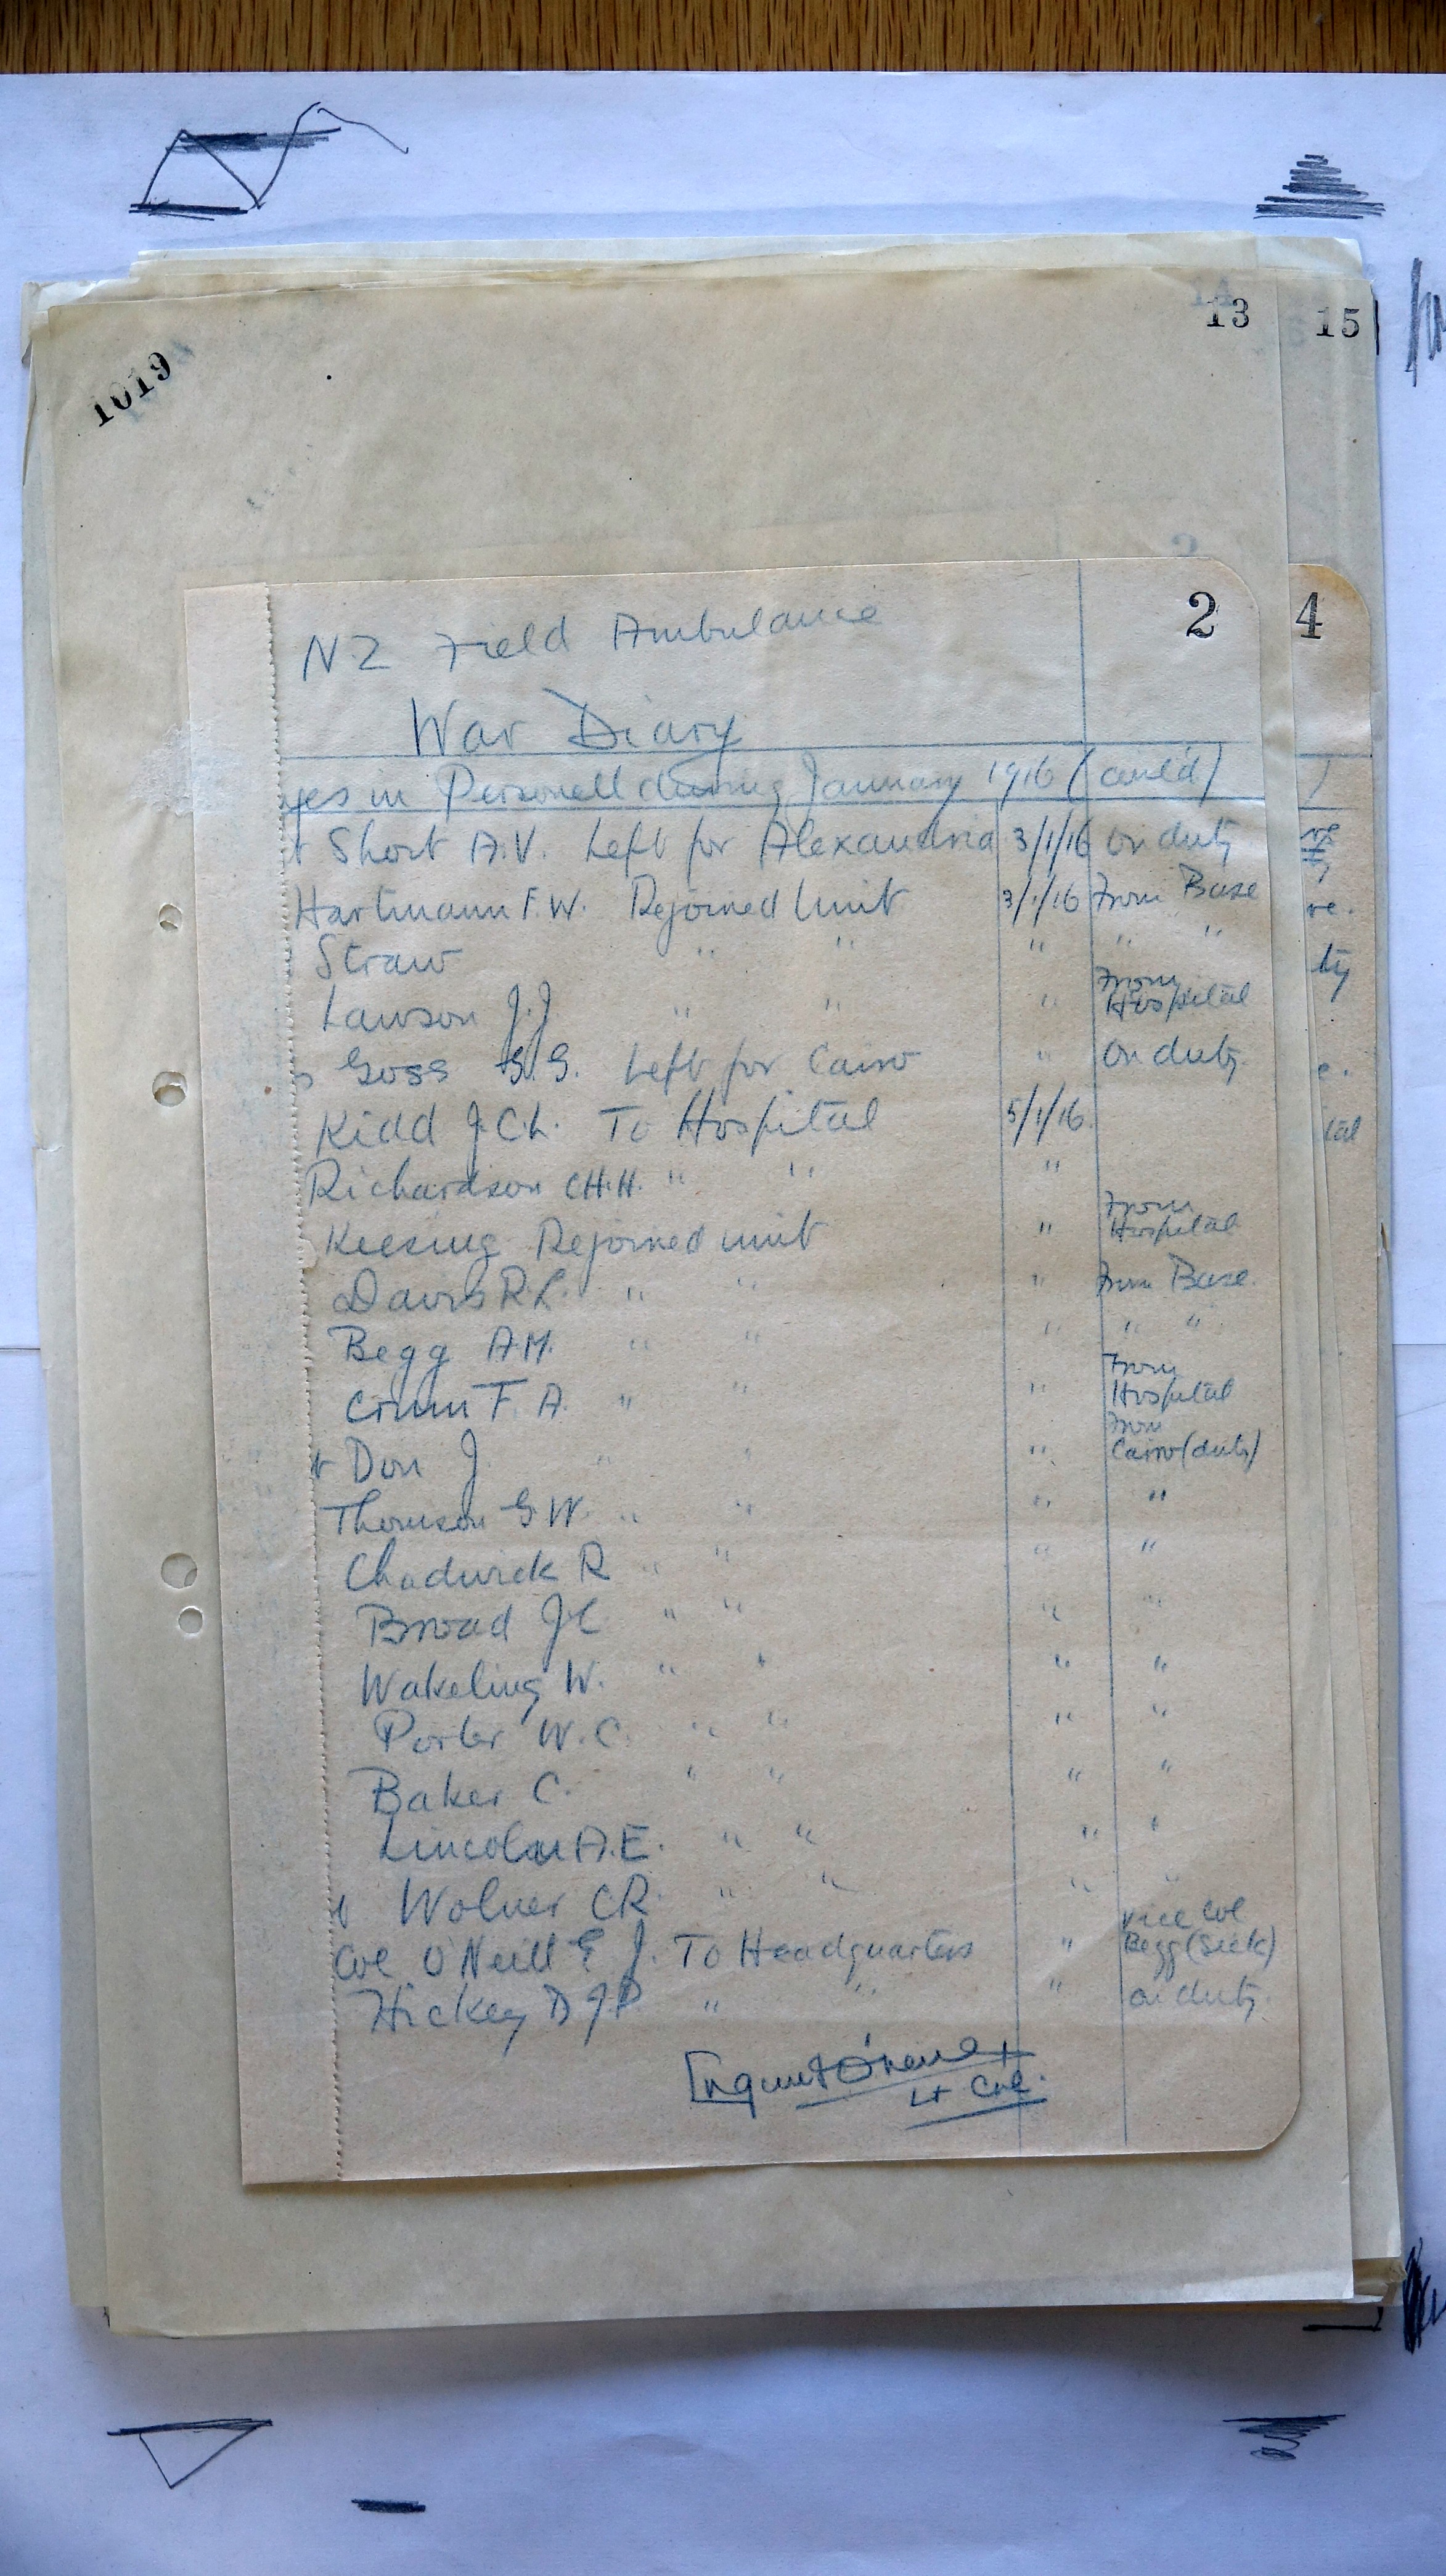 13 15
1019
2 4
N Z Field Ambulance
War Diary
ges in Personell during January 1916 (cont'd)
t Short A.V. Left for Alexandria 3/1/16 On duty
Hartmann F.W. Rejoined Unit 3/1/16 From Base
Straw " " " " "
Lawson J.J " " " From Hospital
Goss G.G. Left for Cairo " On duty.
Kidd J.C.L. To Hospital 5/1/16.
Richardson C.H.H. " " "
Keesing Rejoined unit " From Hospital
Davis R.L. " " " From Base.
Begg A.M. " " " " "
Crum F. A. " " " From Hospital
Don J " " " From Cairo (duty)
Thomson G.W. " " " "
Chadwick R " " " "
Broad J C " " " "
Wakeling W. " " " "
Porter W.C. " " " "
Baker C. " " " "
Lincoln A.E. " " " "
Wolner C R. " " " "
Col O'Neill E J. To Headquarters " vice Col Begg (Sick)
Hickey D J P " " " on duty.
Lt Col.